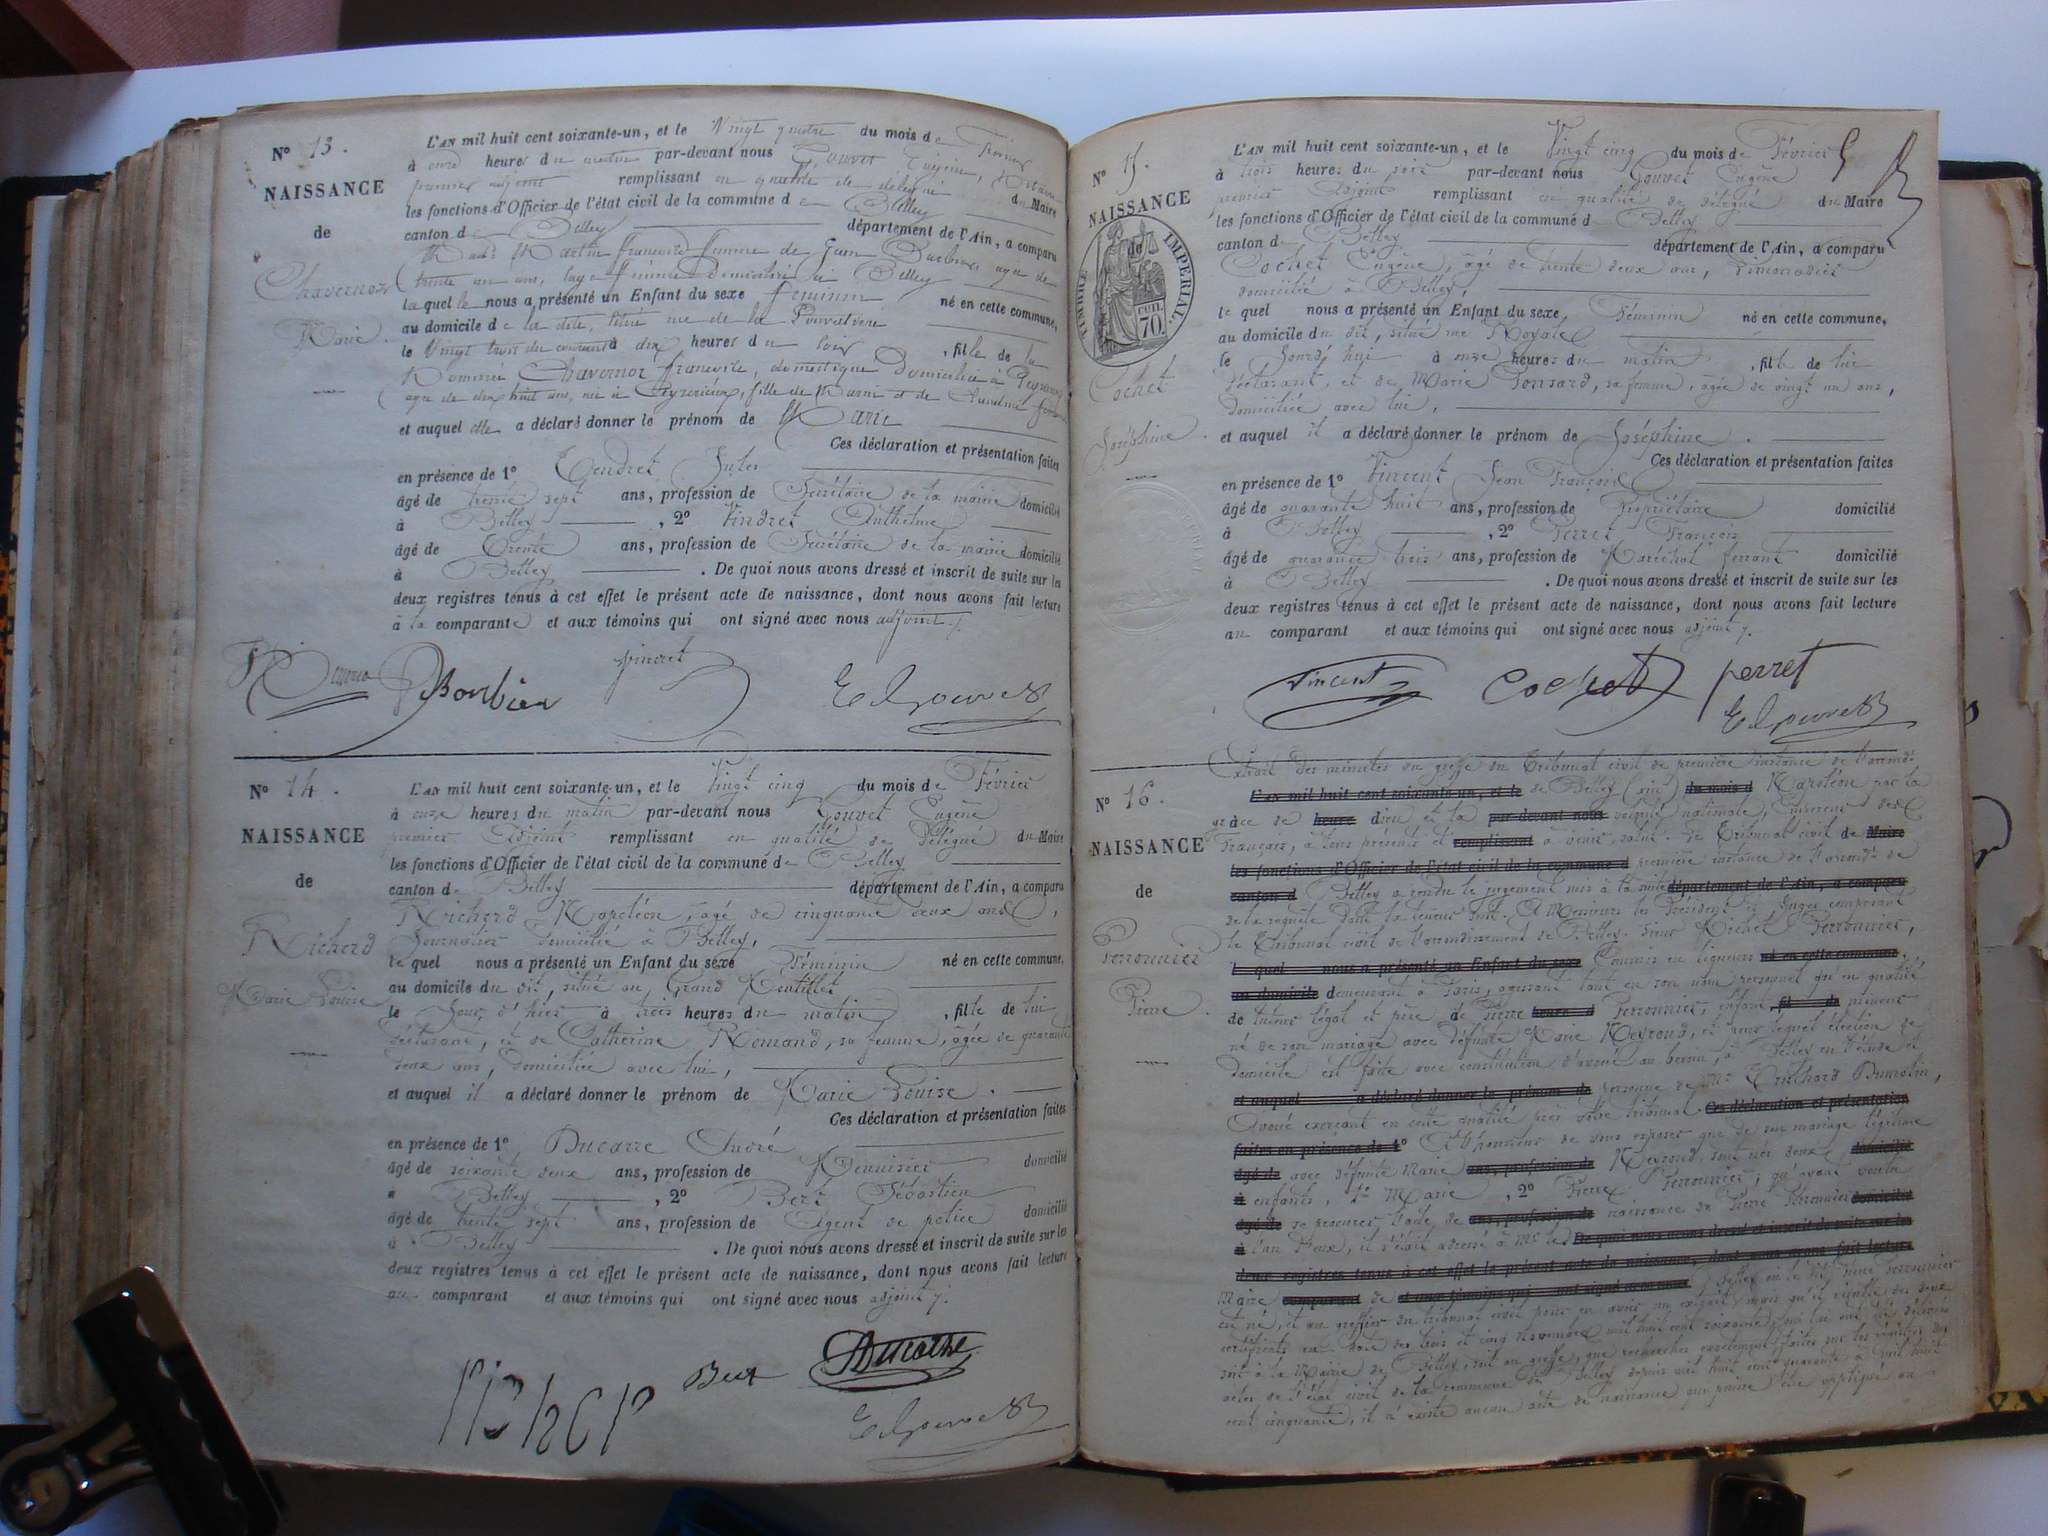 N° 13.
NAISSANCE
de
Chavernoz
Marie.
L'AN mil huit cent soixante-un, et le Vingt quatre du mois de Février
à onze heures du matin par-devant nous Gouvet Eugène,
premier adjoint remplissant en qualité de délégué du Maire
les fonctions d'Officier de l'état civil de la commune de Belley
canton de Belley département de l'Ain, a comparu
Martin Françoise femme de Jean Barbier, agée de
trente un ans, sage femme domiciliée à Belley
laquelle nous a présenté un Enfant du sexe féminin né en cette commune,
au domicile de la dite, situé rue de la
le Vingt trois du courant à dix heures du soir, fille de la
Nommée Chavernoz Francoise, domestique domiciliée à Peyrieu
agée de dix huit ans, née à fille de et de
et auquel elle a déclaré donner le prénom de Marie
Ces déclaration et présentation faites
en présence de 1° Gendret Jules
âgé de trente sept ans, profession de Secrétaire de la mairie domicilié
à Belley, 2° Vindret Anthelme
âgé de Trente ans, profession de Secrétaire de la mairie domicilié
à Belley. De quoi nous avons dressé et inscrit de suite sur les
deux registres tenus à cet effet le présent acte de naissance, dont nous avons fait lecture
à la comparante et aux témoins qui ont signé avec nous adjoint.
Barbier vindret E Gouvet
N° 14.
NAISSANCE
de
Richerd
Marie Louise
L'AN mil huit cent soixante-un, et le Vingt cinq du mois de Février
à onze heures du matin par-devant nous Gouvet Eugène
premier Adjoint remplissant en qualité de Délégué du Maire
les fonctions d'Officier de l'état civil de la commune de Belley
canton de Belley département de l'Ain, a comparu
Richerd Napoléon, âgé de cinquante deux ans,
Journalier domicilié à Belley,
lequel nous a présenté un Enfant du sexe Féminin né en cette commune,
au domicile du dit, situé au Grand
le Jour d'hier à trois heures du matin, fille de lui
déclarant, et de Catherine Romand, sa femme, âgée de quarante
deux ans, domiciliée avec lui,
et auquel il a déclaré donner le prénom de Marie Louise.
Ces déclaration et présentation faites
en présence de 1° Ducarre André
âgé de soixante deux ans, profession de Menuisier domicilié
à Belley, 2° Bert Sébastien
âgé de trente sept ans, profession de Agent de police domicilié
à Belley. De quoi nous avons dressé et inscrit de suite sur les
deux registres tenus à cet effet le présent acte de naissance, dont nous avons fait lecture
au comparant et aux témoins qui ont signé avec nous adjoint.
Richer Bert Ducarre
E Gouvet
N° 15.
NAISSANCE
de
TIMBRE IMPERIAL
70.
Cochet
Joséphine.
L'AN mil huit cent soixante-un, et le Vingt cinq du mois de Février
à trois heures du soir par-devant nous Gouvet Eugène
premier Adjoint remplissant en qualité de Délégué du Maire
les fonctions d'Officier de l'état civil de la commune de Belley
canton de Belley département de l'Ain, a comparu
Cochet Eugène, âgé de trente deux ans, Limonadier
domicilié à Belley,
lequel nous a présenté un Enfant du sexe Féminin né en cette commune,
au domicile du dit, situé rue Royale
le Jourd'hui à onze heures du matin, fille de lui
déclarant, et de Marie Ponsard, sa femme, âgée de vingt un ans,
domiciliée avec lui,
et auquel il a déclaré donner le prénom de Joséphine.
Ces déclaration et présentation faites
en présence de 1° Vincent Jean François
âgé de quarante huit ans, profession de Propriétaire domicilié
à Belley, 2° Perret François
âgé de quarante trois ans, profession de Maréchal ferrant domicilié
à Belley. De quoi nous avons dressé et inscrit de suite sur les
deux registres tenus à cet effet le présent acte de naissance, dont nous avons fait lecture
au comparant et aux témoins qui ont signé avec nous adjoint.
Vincent Cochet perret
E Gouvet
N° 16.
NAISSANCE
de
Perronnier
Pierre.
Extrait des minutes du greffe du Tribunal civil de première instance de l'arrond^t
L'an mil huit cent soixante-un, et le de Belley (ain) du mois d Napoléon par la
grâce de heure dieu et la par-devant nous volonté nationale, Empereur des
Français, à tous présents et remplissant à venir, salut. Le Tribunal civil de Maire
les fonctions d'Officier de l'état civil de la commune d première instance de l'arrond^t de
canton d Belley a rendu le jugement mis à la suite département de l'Ain, a comparu
de la requête dont la teneur suit. A Messieurs les Président et Juges composant
le Tribunal civil de l'arrondissement de Belley. Sieur Michel Perronnier,
l quel nous a présenté un Enfant du sexe Commis en liqueurs né en cette commune,
au domicile demeurant à Paris, agissant tant en son nom personnel qu'en qualité
de tuteur légal et père de Pierre heure d Perronnier, enfant fil de mineur
né de son mariage avec défunte Marie Meyrond, et pour lequel élection de
domicile est faite avec constitution d'avoué au besoin, à Belley en l'étude et
et auquel a déclaré donner le prénom de personne de M^e Dumolin,
Avoué exerçant en cette qualité près votre tribunal Ces déclaration et présentation
faites en présence de 1° A l'honneur de vous exposer que de son mariage légitime
âgé de avec défunte Marie ans, profession de Meyrond sont nés deux domicilié
à enfants, 1° Marie, 2° Pierre Perronnier, qu'ayant voulu
âgé de se procurer l'acte de ans, profession de naissance de Pierre Perronnier domicilié
à l'un d'eux, il s'était adressé à M^r le De quoi nous avons dressé et inscrit de suite sur les
deux registres tenus à cet effet le présent acte de naissance, dont nous avons fait lecture
Maire comparant de et aux témoins qui ont signé avec nous Belley où le dit Pierre Perronnier
est né, et au greffier du tribunal civil pour en avoir un extrait, mais qu'il résulte de deux
certificats en date des trois et cinq Novembre mil huit cent soixante, qui lui ont été délivrés
soit à la Mairie de Belley, soit au greffe, que recherches exactement faites sur les registres des
actes de l'état civil de la commune de Belley depuis mil huit cent quarante à mil huit
cent cinquante, il n'existe aucun acte de naissance qui puisse être appliqué au